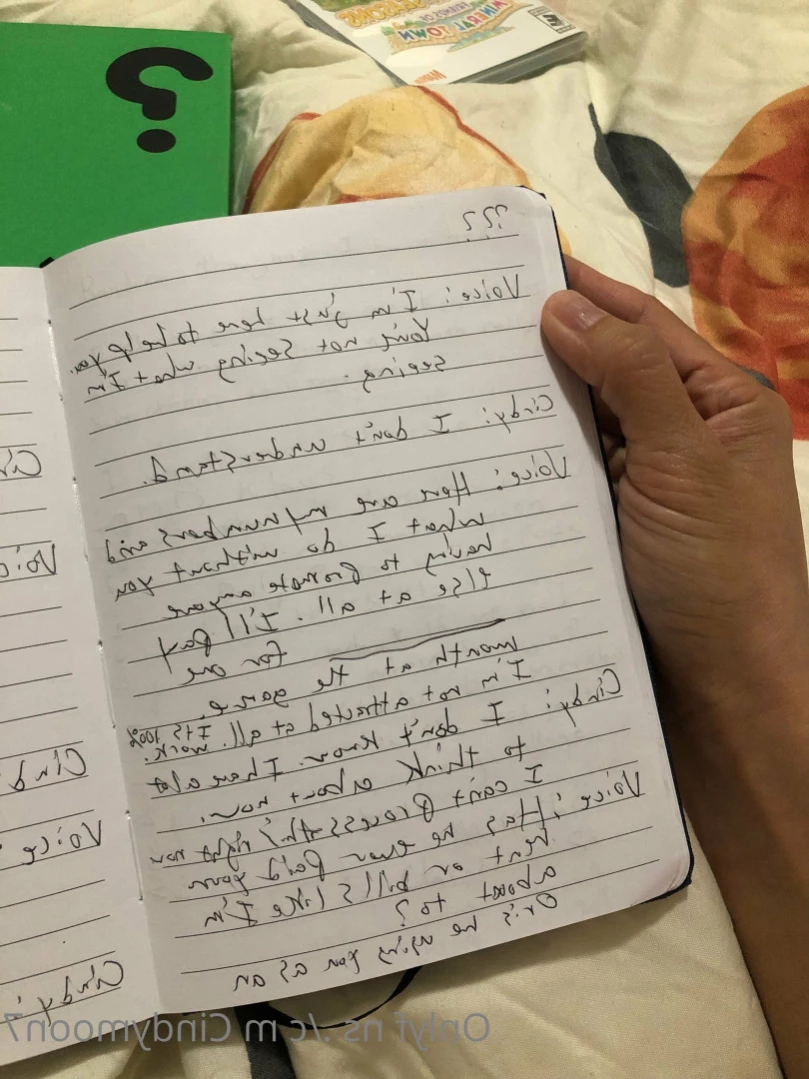 ?
STORY OF SEASONS
FRIENDS OF
MINERAL TOWN
???
Voice: I'm just here to help you.
You're not seeing what I'm
seeing.
Cindy: I don't understand.
Voice: Here are my numbers and
what I do without you
having to promote anyone
else at all. I'll pay
for one
month at the game.
I'm not attracted at all. It's 100% work.
Cindy: I don't know. I have a lot
to think about now.
I can't process this right now
Voice: Has he ever paid your
rent or bills like I'm
about to?
Or is he using you as an
Cin
Voic
Cind
Voice:
Cindy:
Onlyf ns./c m Cindymoon7